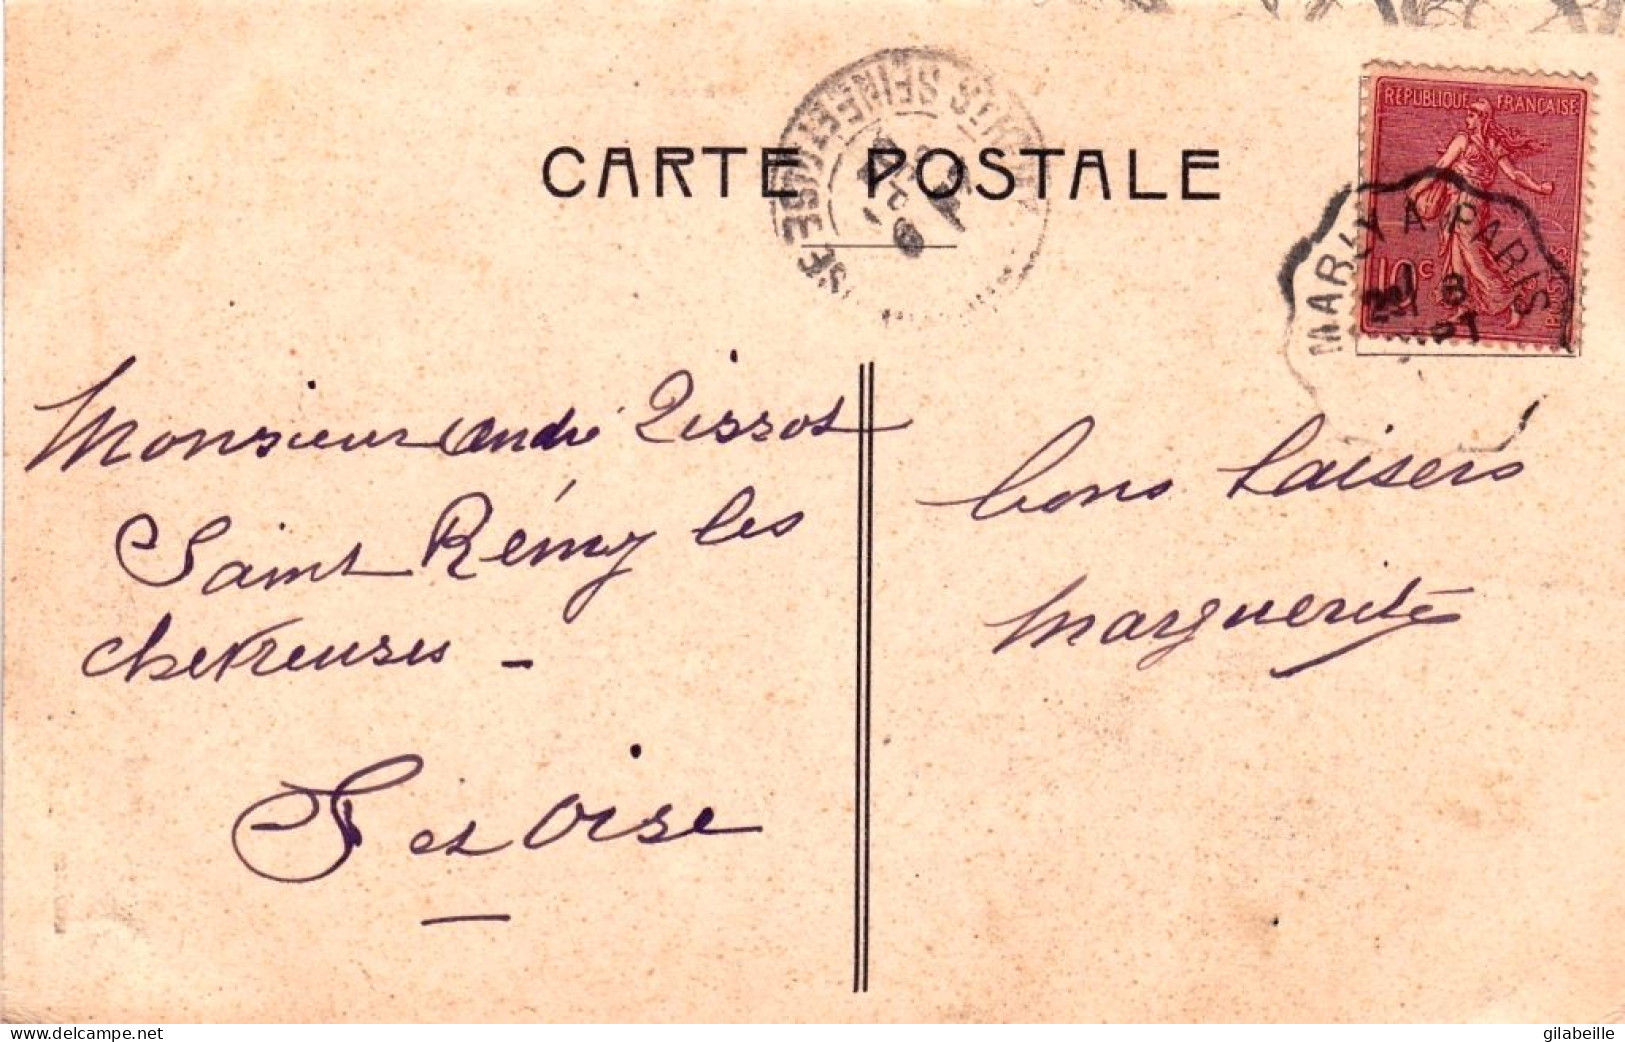 CARTE POSTALE
SEINE ET OISE
REPUBLIQUE FRANÇAISE
10c
POSTES
A PARIS
Monsieur André Tissot
Saint Rémy les
chevreuses -
S et Oise
bons baisers
Marguerite
www.delcampe.net
gilabeille